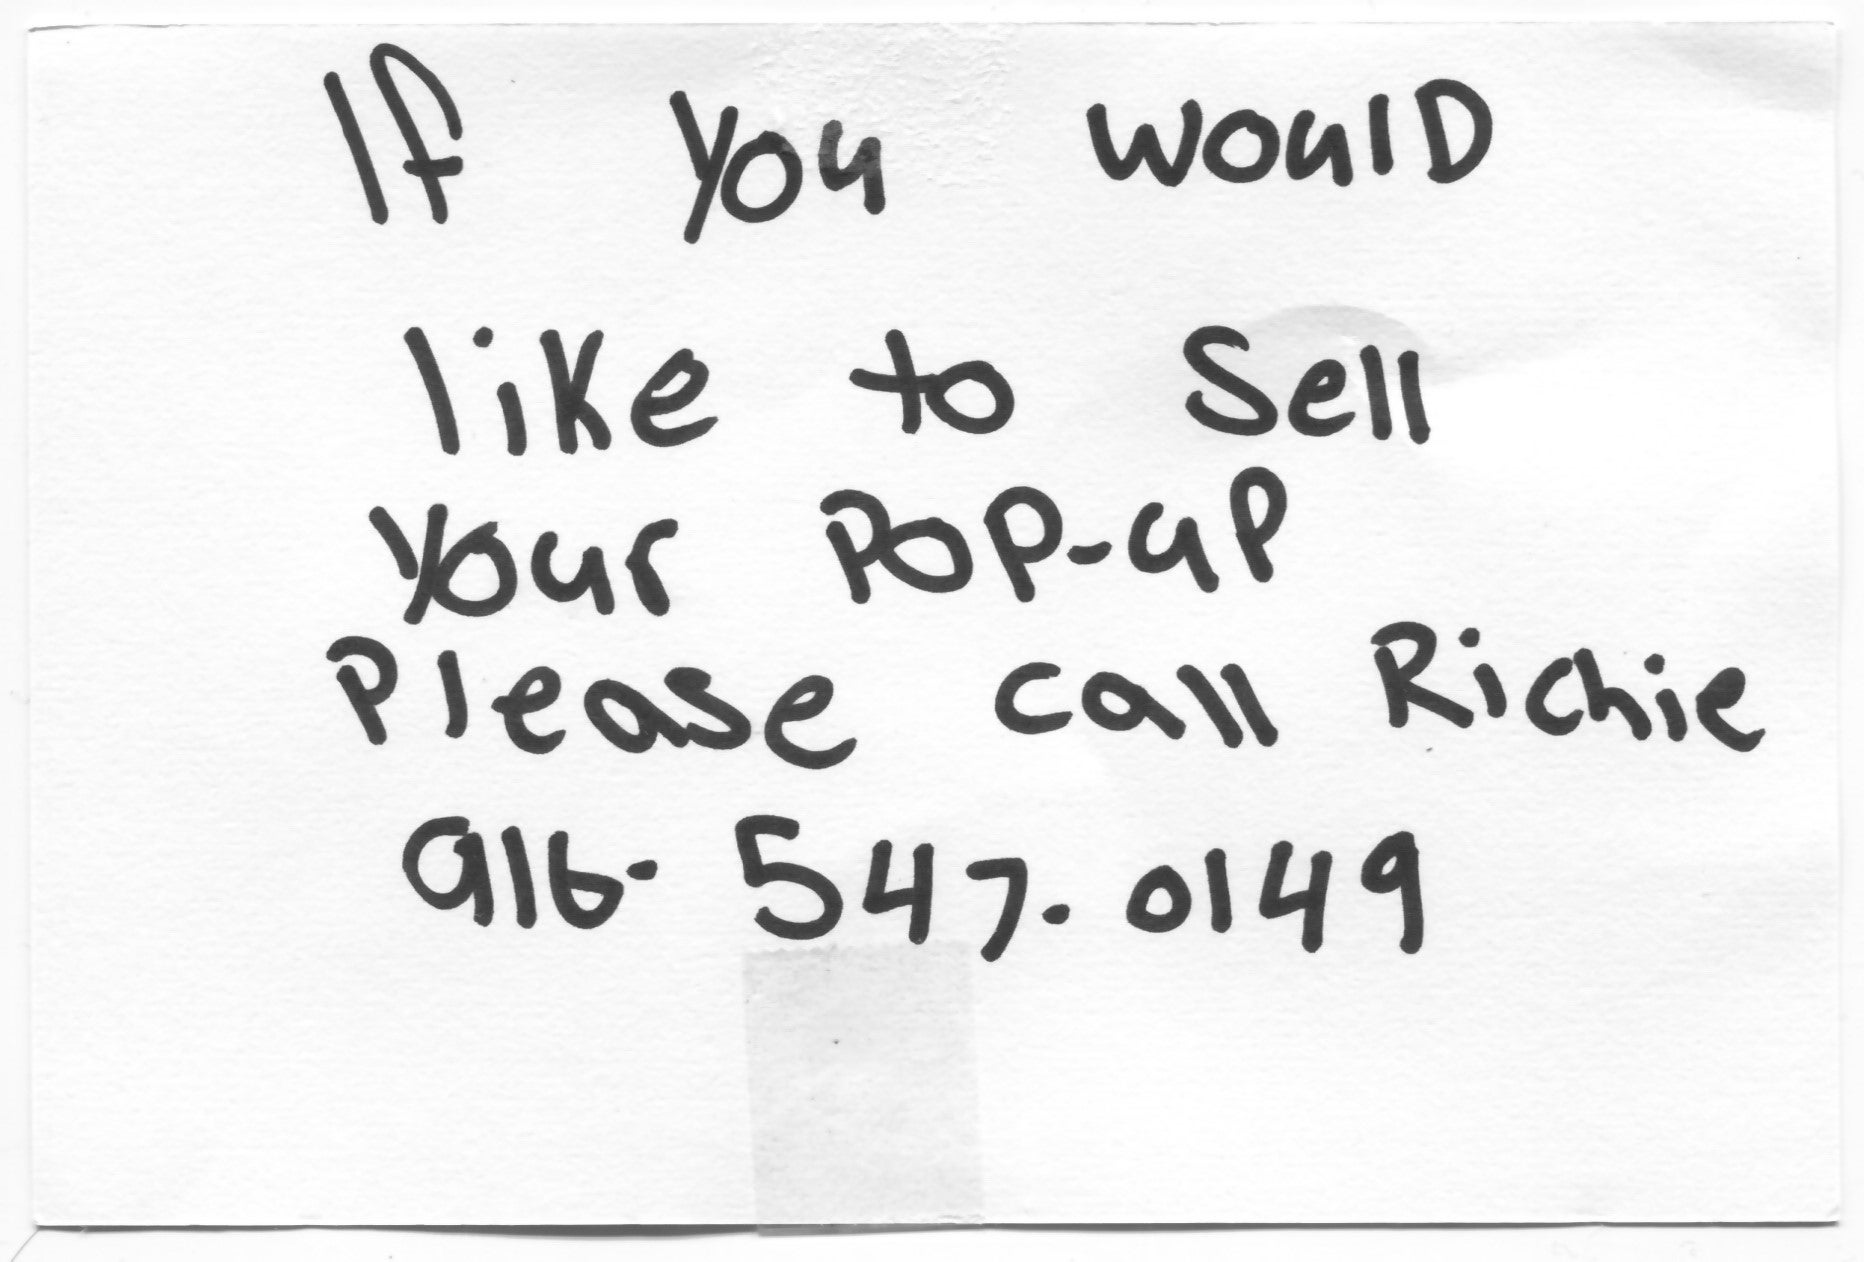 If you would
like to Sell
Your Pop-up
Please call Richie
916- 547-0149